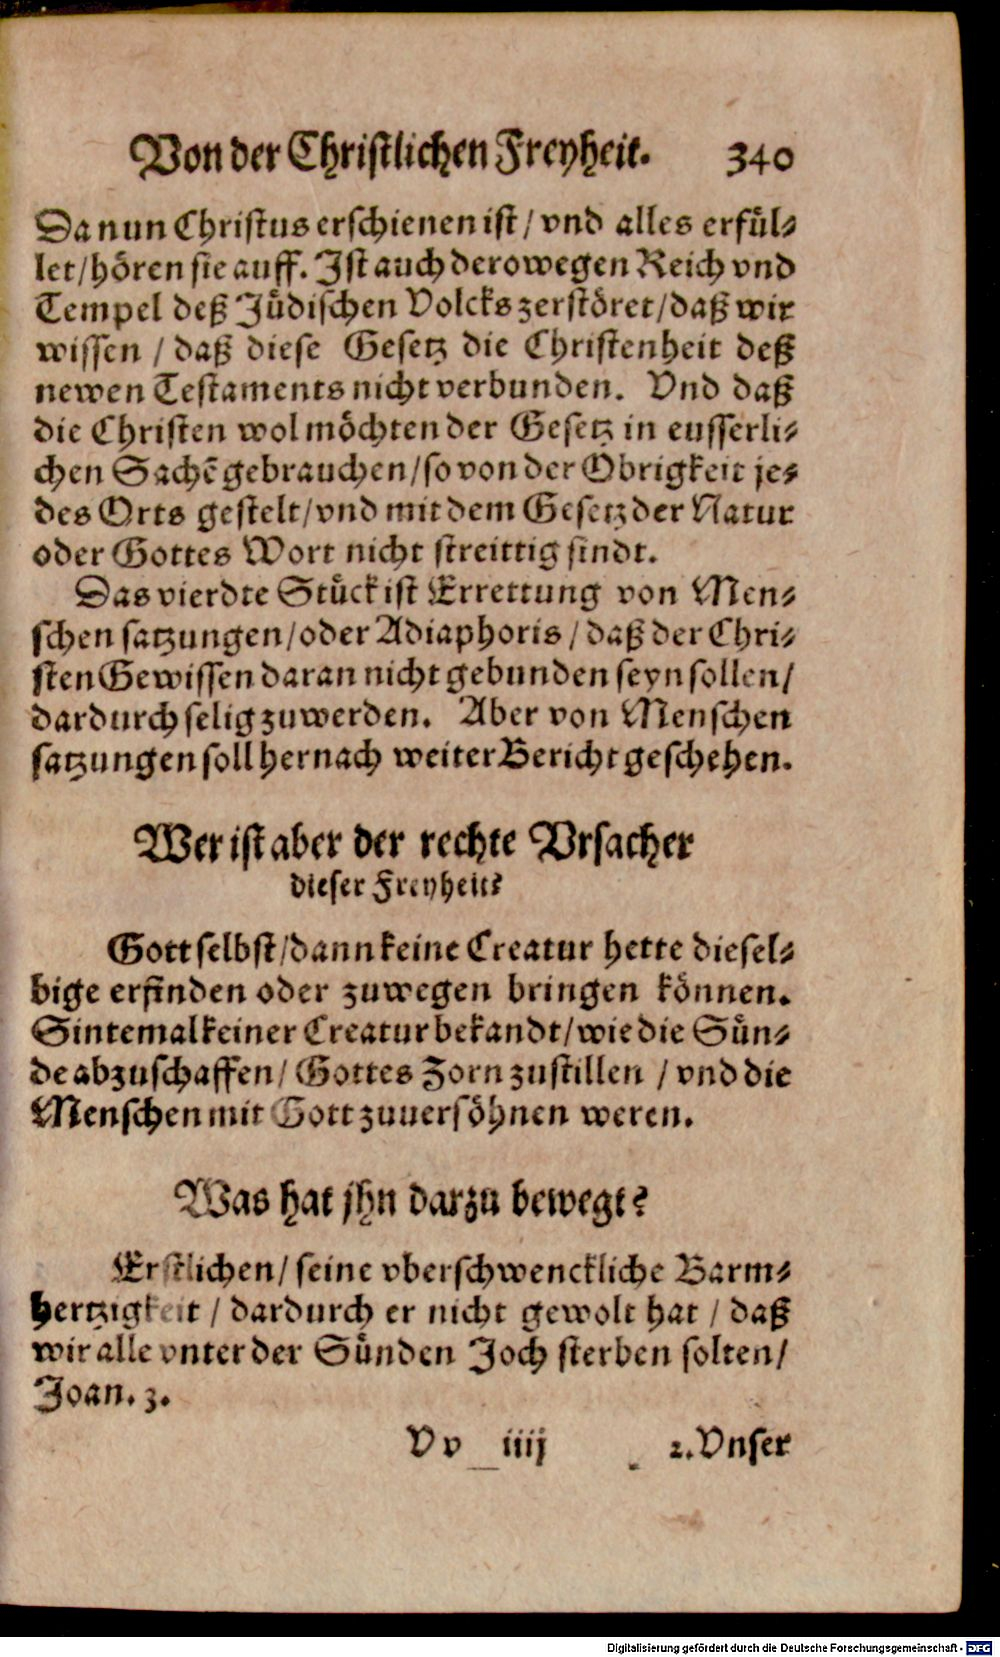 Von der Christlichen Freyheit. 340
Da nun Christus erschienen ist / vnd alles erfül-
let / hören sie auff. Ist auch derowegen Reich vnd
Tempel deß Jüdischen Volcks zerstöret / daß wir
wissen / daß diese Gesetz die Christenheit deß
newen Testaments nicht verbunden. Vnd daß
die Christen wol möchten der Gesetz in eusserli-
chen Sachē gebrauchen / so von der Obrigkeit je-
des Orts gestelt / vnd mit dem Gesetz der Natur
oder Gottes Wort nicht streittig sindt.
Das vierdte Stück ist Errettung von Men-
schen satzungen / oder Adiaphoris / daß der Chri-
sten Gewissen daran nicht gebunden seyn sollen /
dardurch selig zu werden. Aber von Menschen
satzungen soll hernach weiter Bericht geschehen.
Wer ist aber der rechte Vrsacher
dieser Freyheit?
Gott selbst / dann keine Creatur hette diesel-
bige erfinden oder zuwegen bringen können.
Sintemal keiner Creatur bekandt / wie die Sün-
de abzuschaffen / Gottes Zorn zustillen / vnd die
Menschen mit Gott zuuersöhnen weren.
Was hat jhn darzu bewegt?
Erstlichen / seine vberschwenckliche Barm-
hertzigkeit / dardurch er nicht gewolt hat / daß
wir alle vnter der Sünden Joch sterben solten /
Joan. 3.
Vv iiij 2. Vnser
Digitalisierung gefördert durch die Deutsche Forschungsgemeinschaft - DFG